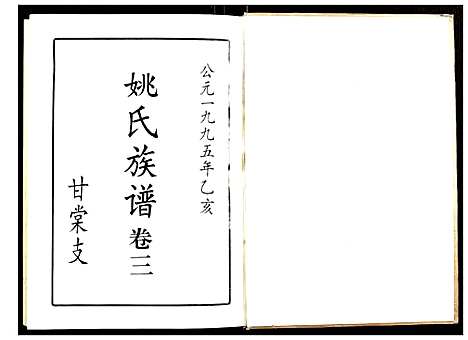 公元一九九五年乙亥
姚氏族谱卷三
甘棠支